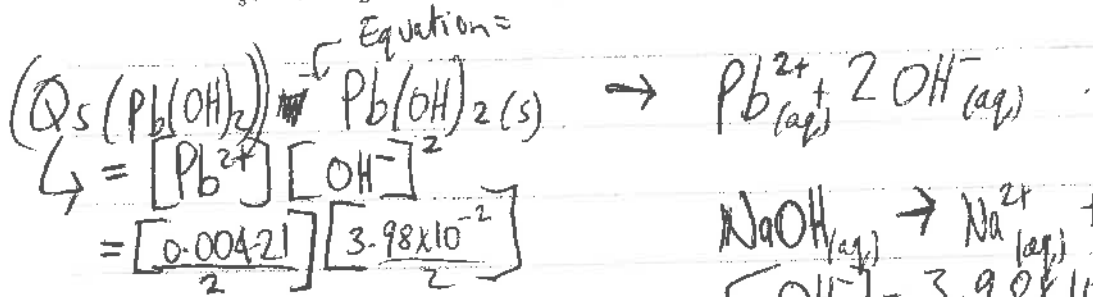 Equation=
(Qs (Pb(OH)2)) Pb(OH)2 (s) → Pb2+ (aq) + 2 OH- (aq)
↳ = [Pb2+] [OH-]2
= [0.00421/2] [3.98x10-2/2]
NaOH(aq) → Na2+ (aq) +
[OH-] =